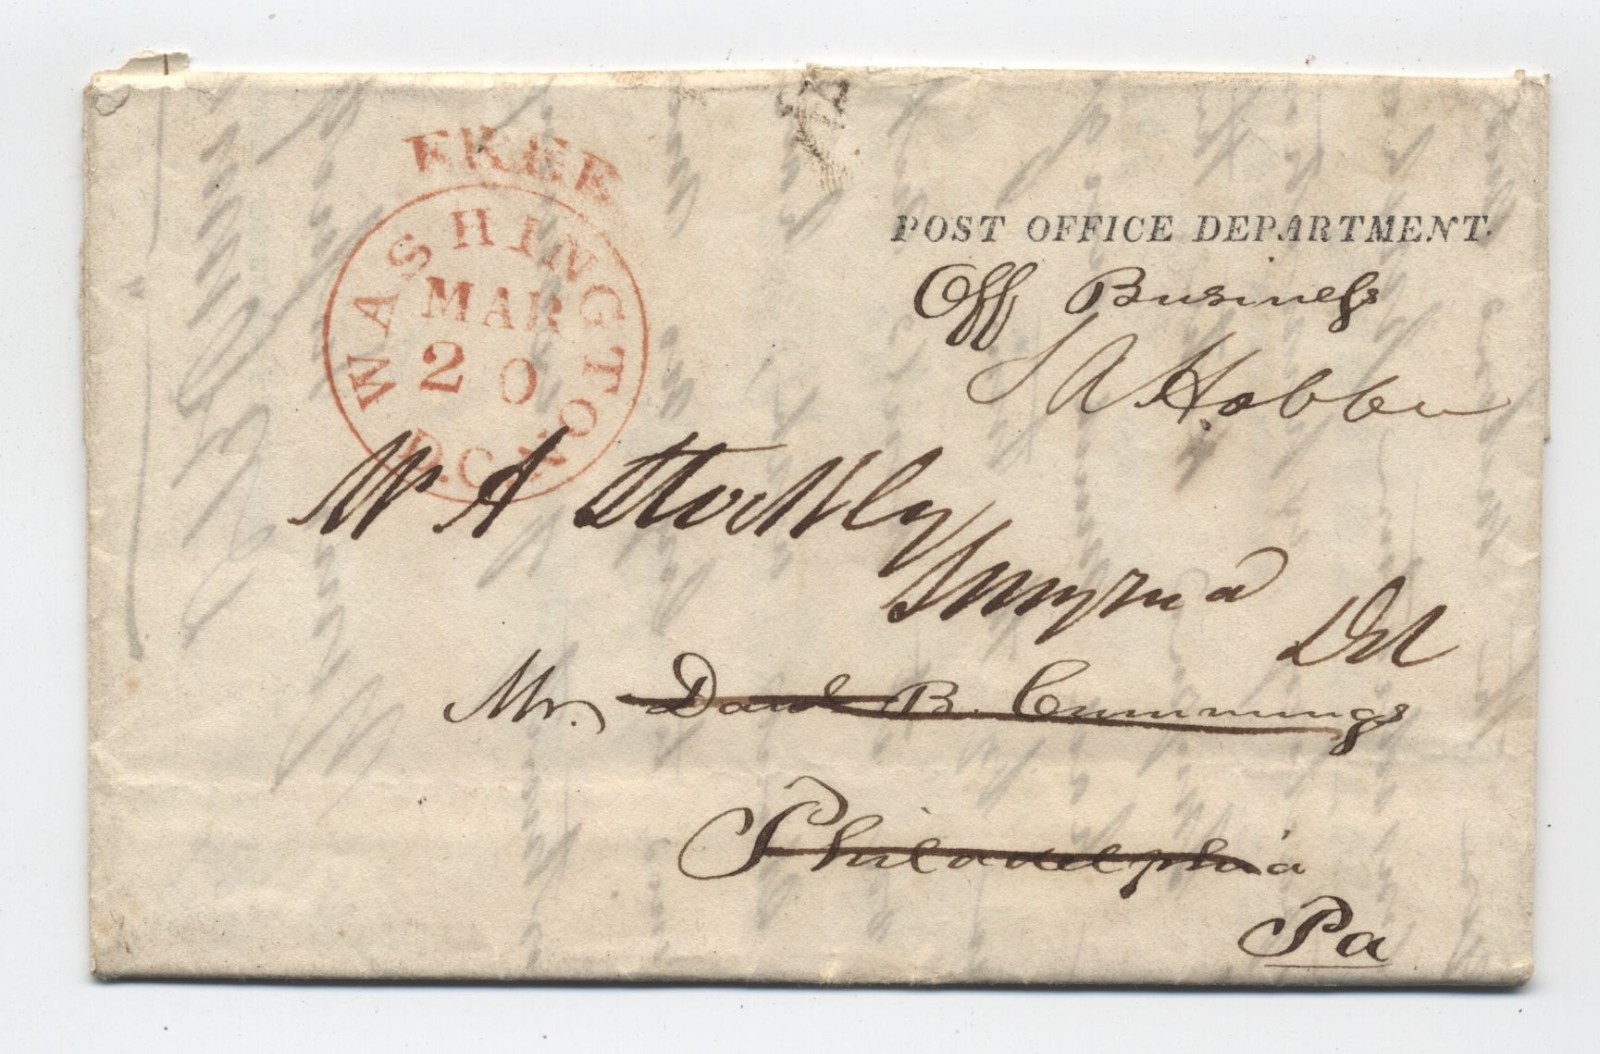 FREE
WASHINGTON D.C.
MAR
20
POST OFFICE DEPARTMENT.
Off Business
S A Hobbie
W A Stockly
Smyrna
Del
Mr. Danl B. Cummings
Philadelphia
Pa